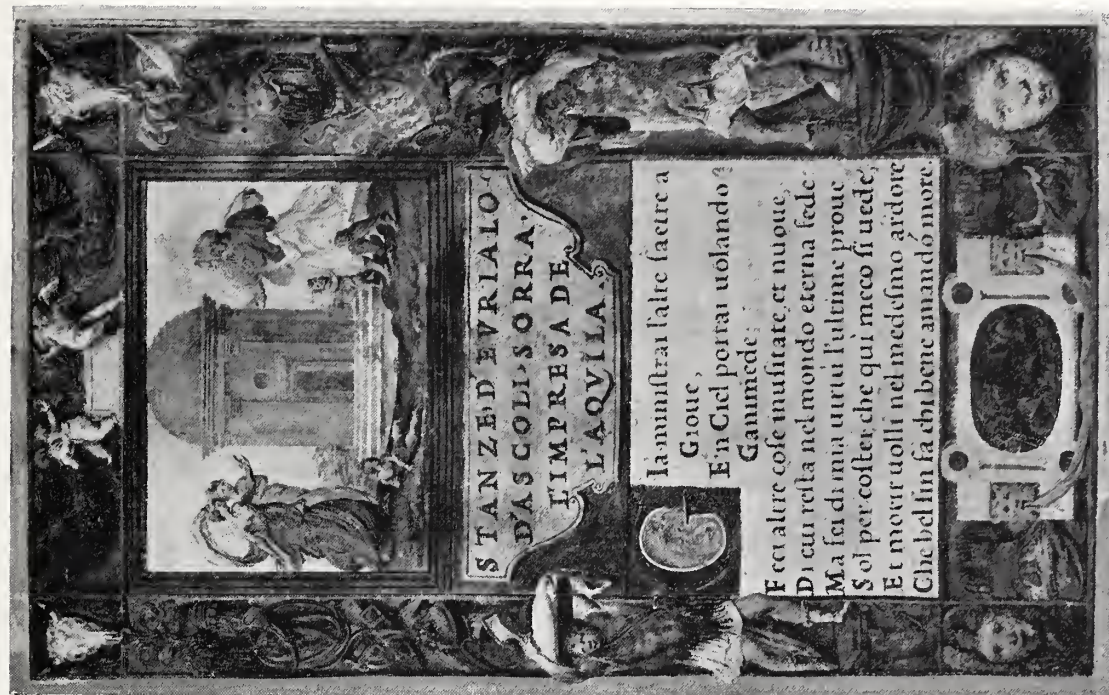 STANZE D'EVRIALO
D'ASCOLI SOPRA
L'IMPRESA DE
L'AQVILA.
Ia ministrai l'alte saette a
Gioue,
E'n Ciel portai uolando
Ganimede:
Feci altre cose inusitate, et nuoue,
Di cui resta nel mondo eterna fede.
Ma fei di mia uirtù l'ultime proue
Sol per costei, che qui meco si uede,
Et morir uolli nel medesmo ardore
Che bel fin fa chi bene amando more.